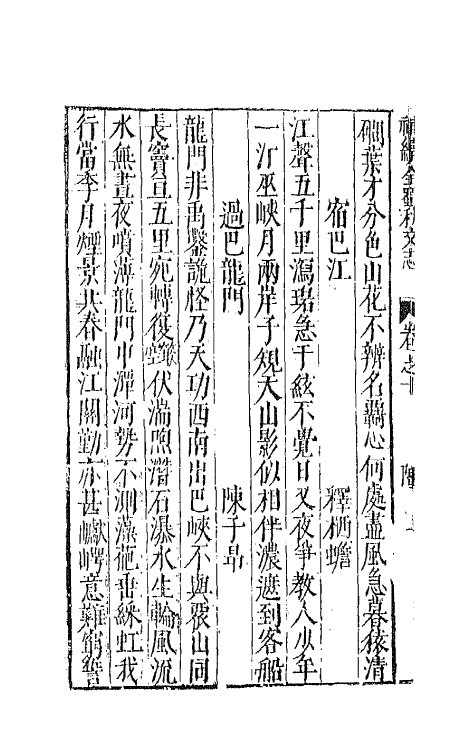 補續全蜀藝文志 卷之十
磵葉才分色山花不辨名羈心何處盡風急暮猿清
宿巴江 釋栖蟾
江聲五千里瀉碧急于絃不覺日又夜爭教人少年
一汀巫峽月兩岸子規天山影似相伴濃遮到客船
過巴龍門 陳子昻
龍門非禹鑿詭怪乃天功西南出巴峽不與衆山同
長竇亘五里宛轉復嵌空伏湍煦潛石瀑水生輪風流
水無晝夜噴薄龍門中潭河勢不測藻葩垂綵虹我
行當季月煙景共舂融江關勤亦甚巘崿意難窮誓